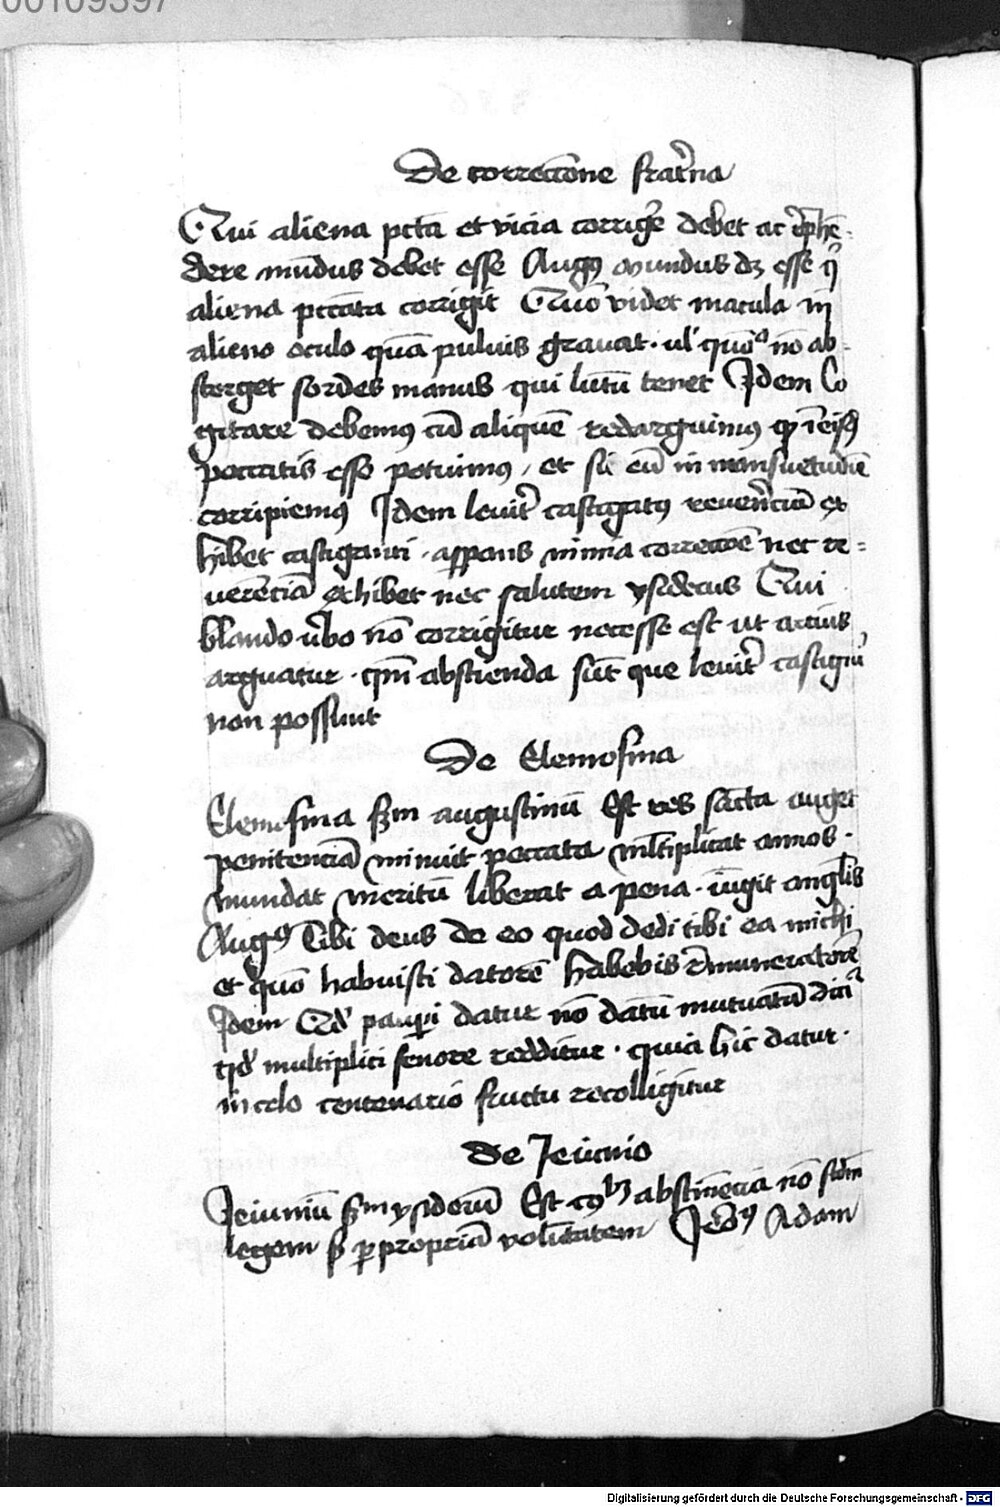 00109397
De correctione frat̄na
Qui aliena pctā et vicia corrigē debet ac rp̄hē-
dere mūdus debet esse Augꝰ mundus dꝫ esse q̄
aliena pctāta corrigit Quō videt macula in
alieno oculo quā puluis grauat · ul' quōº nō ab-
sterget sordes manus qui lutū tenet Idem Co
gitare debemꝰ cū aliquē redarguimꝰ ꝙ ī eisꝫ
peccatis esse potuimꝰ / et sū eū in mansuetudīe
corripiemꝰ Idem leuit̄ castigatꝰ reuerēciā ex
hibet castiganti · asperans nimia correctōe nec re-
uerēciā exhibet nec salutem ysiderus Qui
blando ūbo nō corrigitur necesse est ut acrius
arguatur · qm̄ abscienda sūt que leuit̄ castigari
non possunt
De Elemosina
Elemosina sm̄ augustinū Est res sācta auget
penitenciā minuit peccata mltiplicat annos ·
mundat meritū liberat a pena · iūgit anglis
Augꝰ Tibi deus de eo quod dedi tibi ea michi
et quō habuisti datorē habebis rmuneratorē
Idem Qd' paupi datur nō datū mutuatū dicit̄
qd' multiplici fenore redditur · quia hic datur ·
in celo centenario fructu recolligitur
de Jeiunio
Jeiuniū sm̄ ysiderū Est abstinēcia nō scdm
legem ꝑ propriā volūtatem Adam
Digitalisierung gefördert durch die Deutsche Forschungsgemeinschaft - DFG